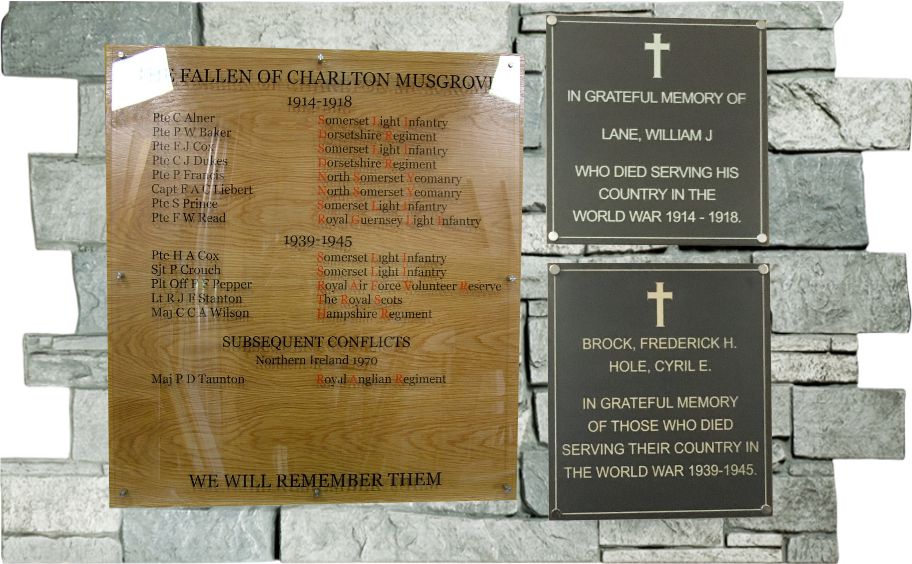 THE FALLEN OF CHARLTON MUSGROVE
1914-1918
Pte C Alner Somerset Light Infantry
Pte P W Baker Dorsetshire Regiment
Pte F J Cox Somerset Light Infantry
Pte C J Dukes Dorsetshire Regiment
Pte P Francis North Somerset Yeomanry
Capt F A C Liebert North Somerset Yeomanry
Pte S Prince Somerset Light Infantry
Pte F W Read Royal Guernsey Light Infantry
1939-1945
Pte H A Cox Somerset Light Infantry
Sjt P Crouch Somerset Light Infantry
Plt Off P F Pepper Royal Air Force Volunteer Reserve
Lt R J F Stanton The Royal Scots
Maj C C A Wilson Hampshire Regiment
SUBSEQUENT CONFLICTS
Northern Ireland 1970
Maj P D Taunton Royal Anglian Regiment
WE WILL REMEMBER THEM
IN GRATEFUL MEMORY OF
LANE, WILLIAM J
WHO DIED SERVING HIS
COUNTRY IN THE
WORLD WAR 1914 - 1918.
BROCK, FREDERICK H.
HOLE, CYRIL E.
IN GRATEFUL MEMORY
OF THOSE WHO DIED
SERVING THEIR COUNTRY IN
THE WORLD WAR 1939-1945.